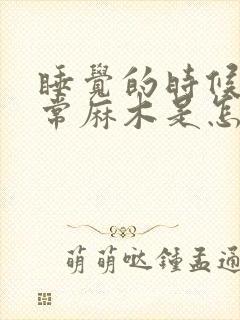 睡覺的時候
常麻木是怎
萌萌哒鍾孟通